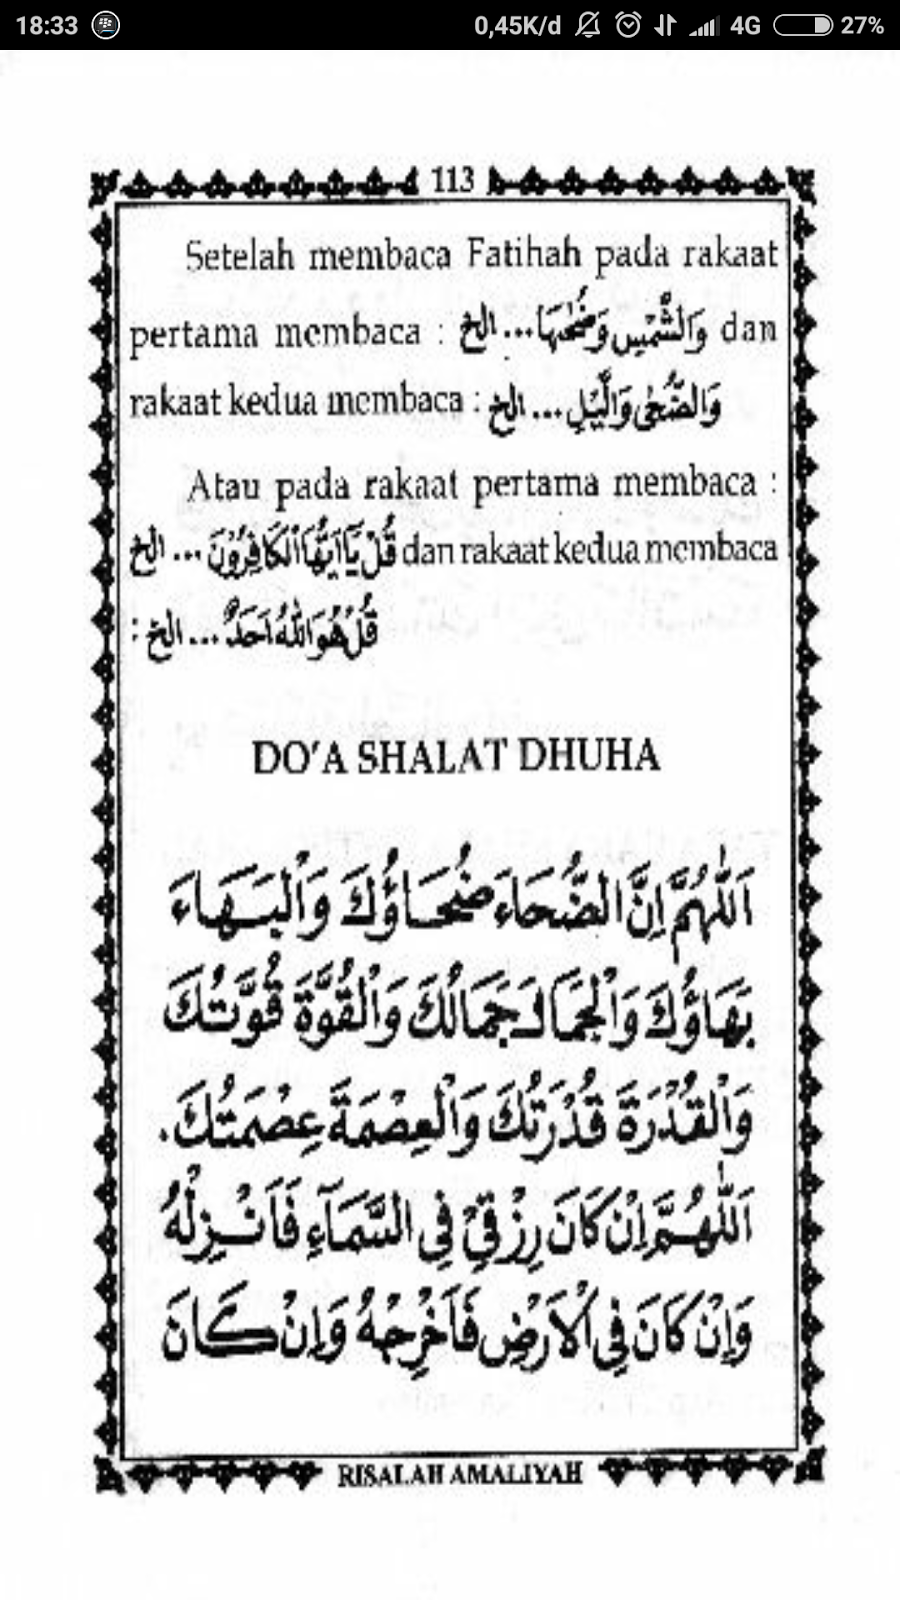 18:33 0,45K/d 4G 27%
113
Setelah membaca Fatihah pada rakaat
pertama membaca : وَالشَّمْسِ وَضُحٰهَا... الخ dan
rakaat kedua membaca : وَالضُّحٰى وَالَّيْلِ... الخ
Atau pada rakaat pertama membaca :
قُلْ يَآاَيُّهَا الْكَافِرُوْنَ ... الخ dan rakaat kedua membaca
: قُلْ هُوَ اللّٰهُ اَحَدٌ ... الخ
DO'A SHALAT DHUHA
اَللّٰهُمَّ اِنَّ الضُّحَاءَ ضُحَاؤُكَ وَالْبَهَاءَ
بَهَاؤُكَ وَالْجَمَالَ جَمَالُكَ وَالْقُوَّةَ قُوَّتُكَ
وَالْقُدْرَةَ قُدْرَتُكَ وَالْعِصْمَةَ عِصْمَتُكَ.
اَللّٰهُمَّ اِنْ كَانَ رِزْقِيْ فِى السَّمَآءِ فَاَنْزِلْهُ
وَاِنْ كَانَ فِى الْاَرْضِ فَاَخْرِجْهُ وَاِنْ كَانَ
RISALAH AMALIYAH